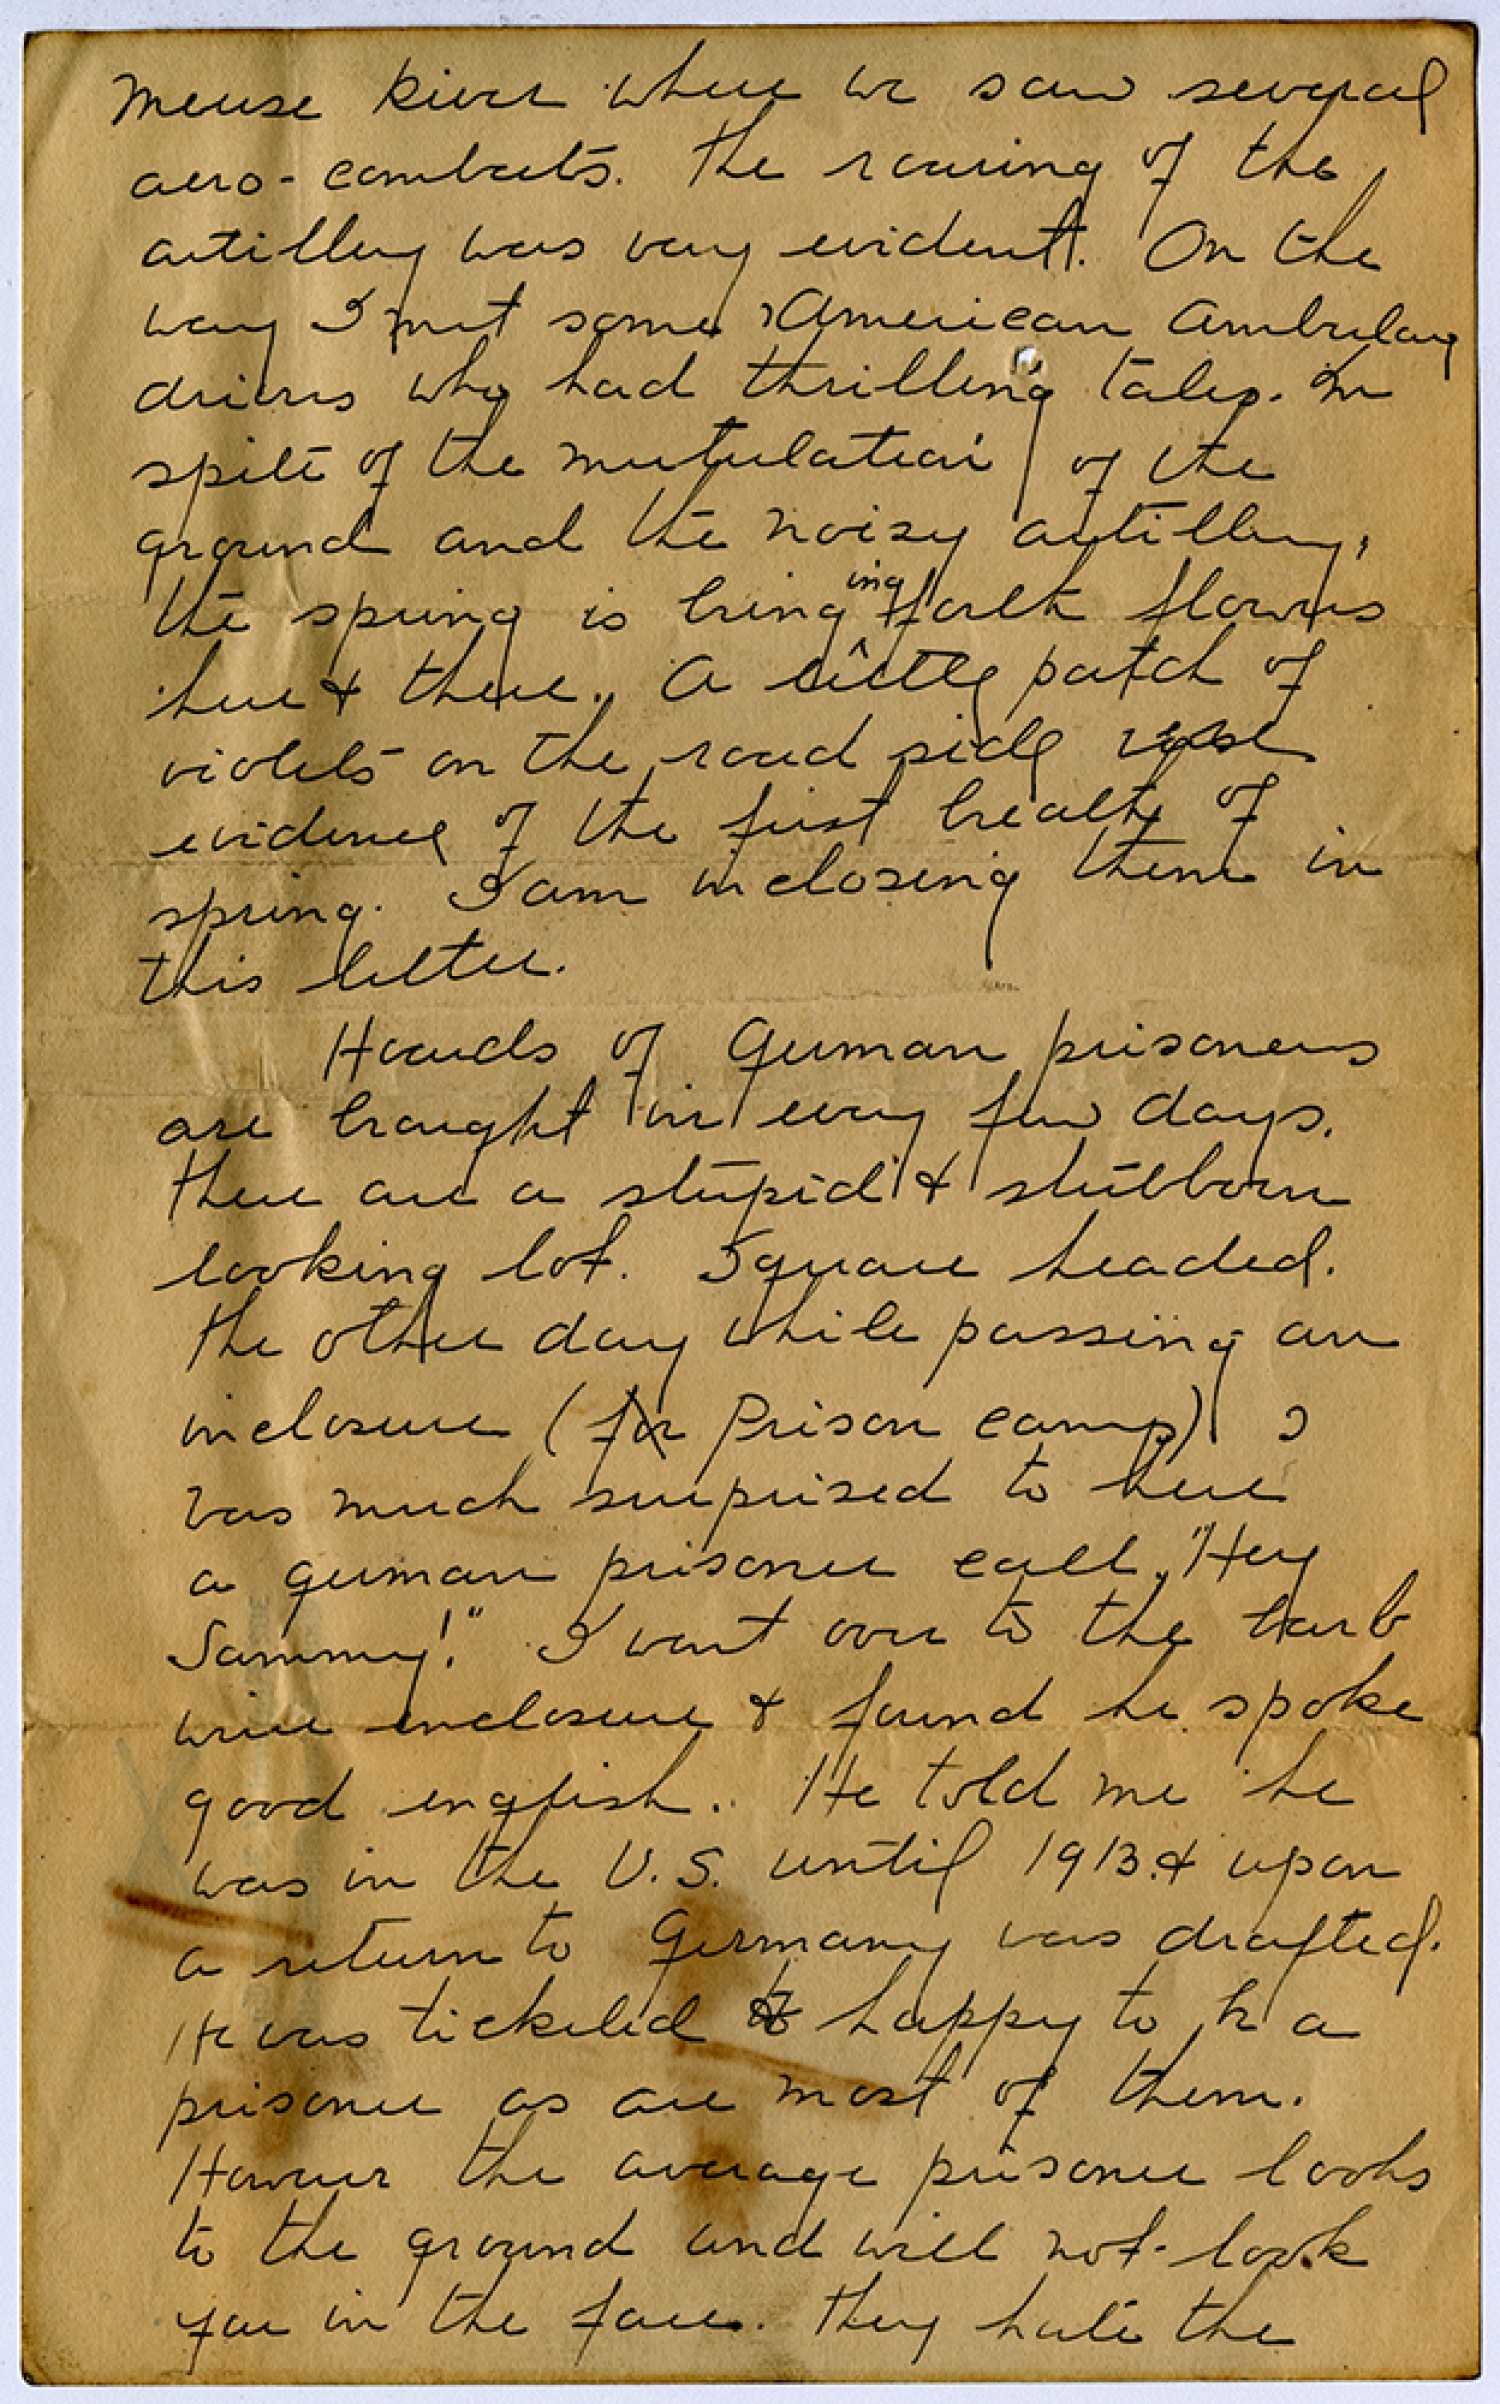 Meuse River where we saw several
aero-combats. The roaring of the
artillery was very evident. On the
way I met some American Ambulance
drivers who had thrilling tales. In
spite of the mutulation of the
ground and the noisy artillery,
the spring is bringing forth flowers
here & there. A little patch of
violets on the road side was
evidence of the first breath of
spring. I am inclosing them in
this letter.
Hoards of German prisoners
are brought in every few days.
There are a stupid & stubborn
looking lot. Square headed.
The other day while passing an
inclosure (for Prison camp) I
was much surprised to here
a German prisoner call, "Hey
Sammy!" I went over to the barb
wire enclosure & found he spoke
good english. He told me he
was in the U.S. until 1913 & upon
a return to Germany was drafted.
He was tickeled & happy to be a
prisoner as are most of them.
However the average prisoner looks
to the ground and will not look
you in the face. They hate the